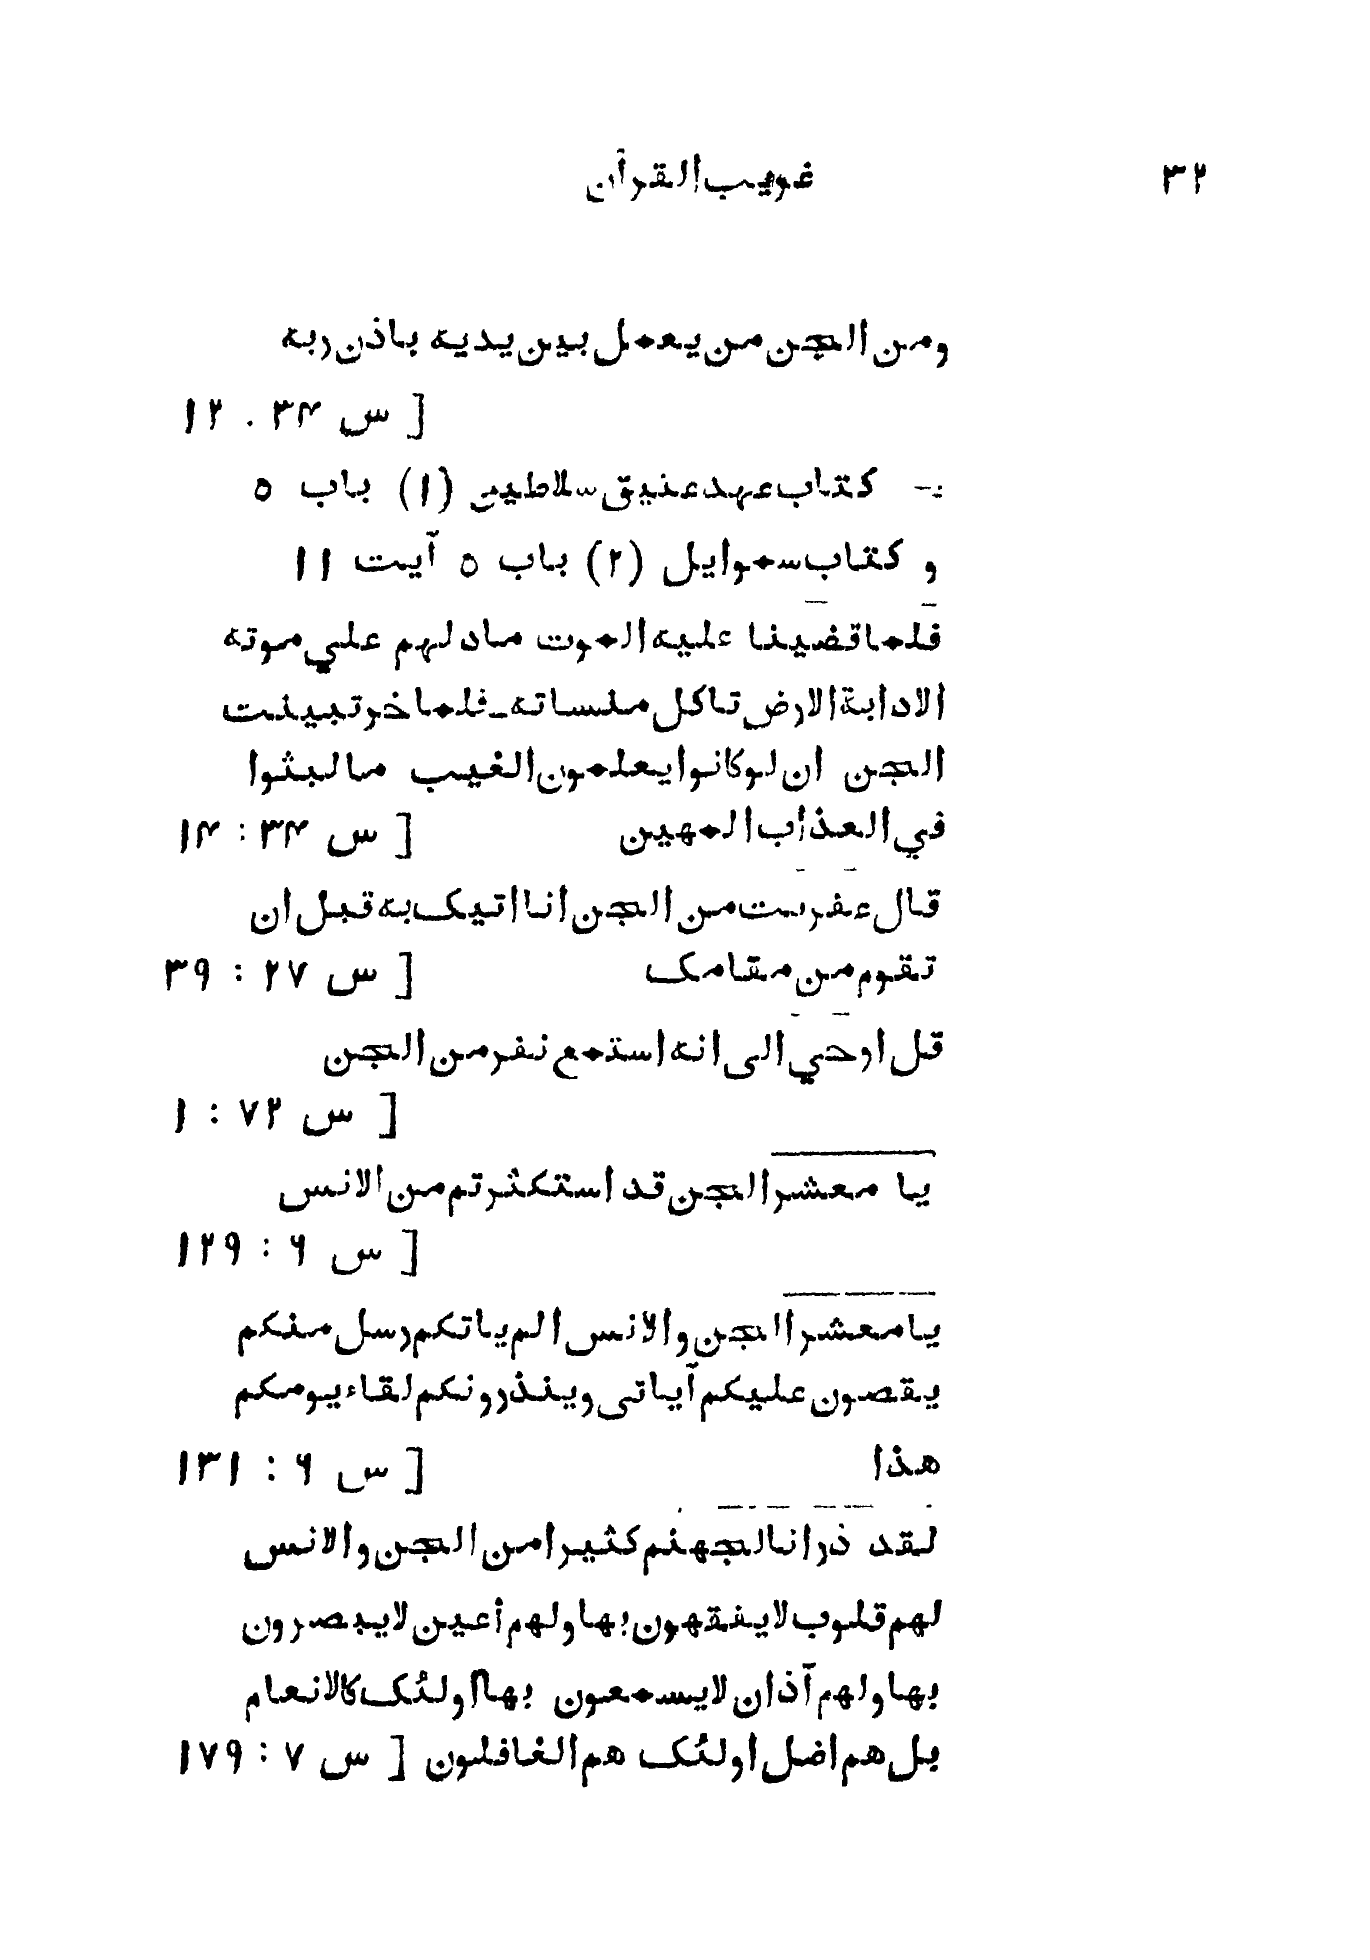 ۳۲ غریب القرآن
ومن الجن من يعمل بين يديه باذن ربه
[ س ۳۴ . ۱۲
:- کتاب عهد عتیق سلاطین (۱) باب ۵
و کتاب سموایل (۲) باب ۵ آیت ۱۱
فلما قضينا عليه الموت مادلهم علي موته
الادابة الارض تاكل منساته - فلما خر تبينت
الجن ان لو كانوا يعلمون الغيب مالبثوا
في العذاب المهين [ س ۳۴ : ۱۴
قال عفريت من الجن انا اتيک به قبل ان
تقوم من مقامک [ س ۲۷ : ۳۹
قل اوحي الى انه استمع نفر من الجن
[ س ۷۲ : ۱
يا معشر الجن قد استكثرتم من الانس
[ س ۶ : ۱۲۹
يا معشر الجن والانس الم ياتكم رسل منكم
يقصون عليكم آياتى وينذرونكم لقاء يومكم
هذا [ س ۶ : ۱۳۱
لقد ذرانا لجهنم كثيرا من الجن والانس
لهم قلوب لايفقهون بها ولهم أعين لايبصرون
بها ولهم آذان لايسمعون بها اولئک كالانعام
بل هم اضل اولئک هم الغافلون [ س ۷ : ۱۷۹